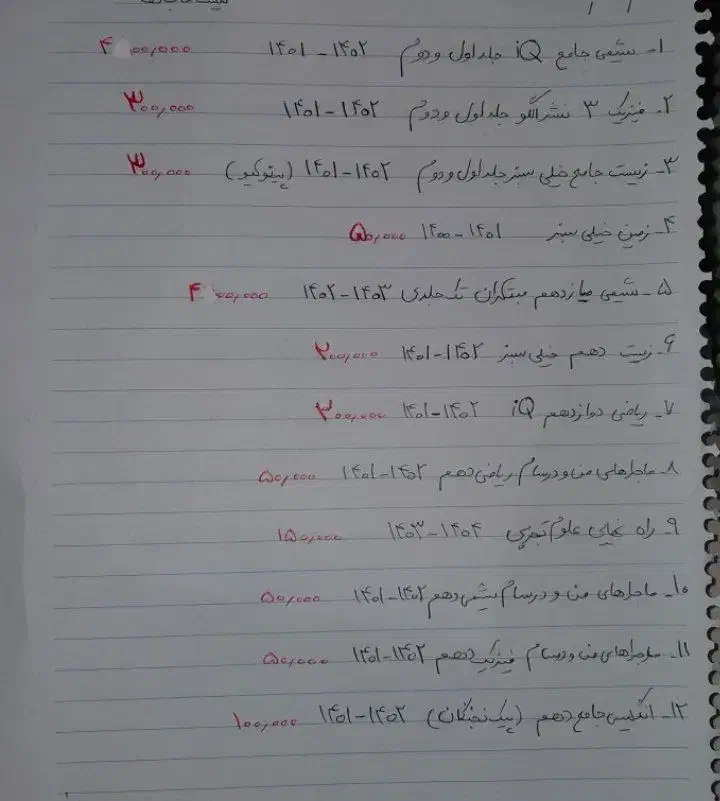 ۱- شیمی جامع IQ جلد اول و دوم ۱۴۰۲ - ۱۴۰۱ ۴۰۰,۰۰۰
۲- فیزیک ۳ نشر الگو جلد اول و دوم ۱۴۰۲ - ۱۴۰۱ ۳۰۰,۰۰۰
۳- زیست جامع خیلی سبز جلد اول و دوم ۱۴۰۲ - ۱۴۰۱ (پینوکیو) ۳۰۰,۰۰۰
۴- زمین خیلی سبز ۱۴۰۱ - ۱۴۰۰ ۵۰,۰۰۰
۵- شیمی یازدهم مبتکران تک جلدی ۱۴۰۳ - ۱۴۰۲ ۴۰۰,۰۰۰
۶- زیست دهم خیلی سبز ۱۴۰۲ - ۱۴۰۱ ۲۰۰,۰۰۰
۷- ریاضی دوازدهم IQ ۱۴۰۲ - ۱۴۰۱ ۳۰۰,۰۰۰
۸- ماجراهای من و درسام ریاضی دهم ۱۴۰۲ - ۱۴۰۱ ۵۰,۰۰۰
۹- راه نهایی علوم تجربی ۱۴۰۴ - ۱۴۰۳ ۱۵۰,۰۰۰
۱۰- ماجراهای من و درسام شیمی دهم ۱۴۰۲ - ۱۴۰۱ ۵۰,۰۰۰
۱۱- ماجراهای من و درسام فیزیک دهم ۱۴۰۲ - ۱۴۰۱ ۵۰,۰۰۰
۱۲- انگلیسی جامع دهم (پیک نخبگان) ۱۴۰۲ - ۱۴۰۱ ۱۰۰,۰۰۰